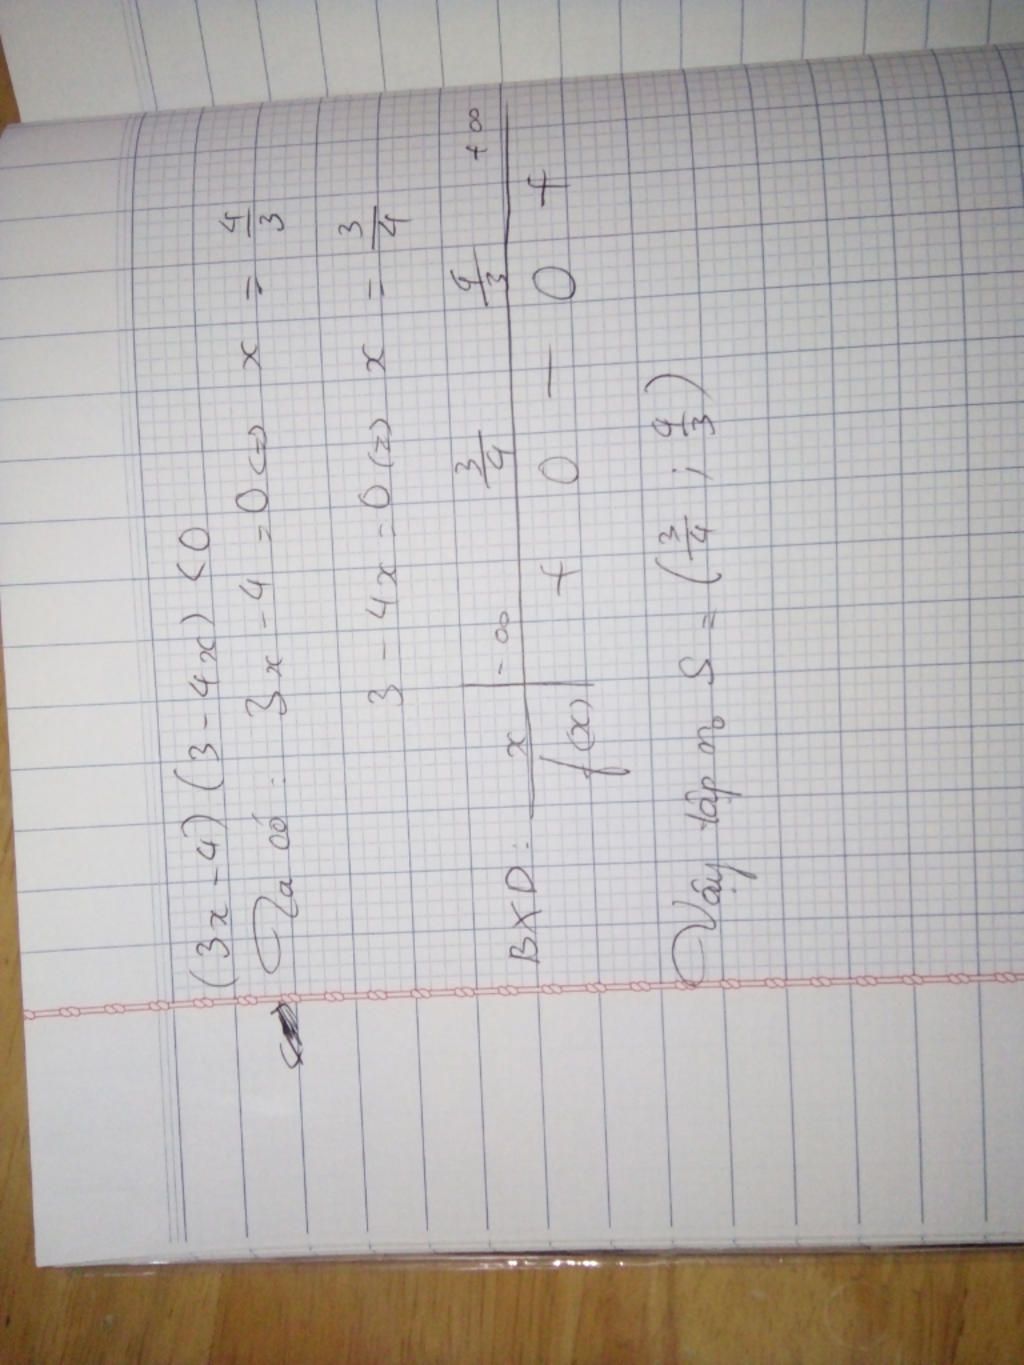 (3x - 4)(3 - 4x) < 0
Ta có: 3x - 4 = 0 <=> x = 4/3
3 - 4x = 0 (=) x = 3/4
BXD: x | -∞ 3/4 4/3 +∞
f(x) | + 0 - 0 +
Vậy tập no S = (3/4 ; 4/3)